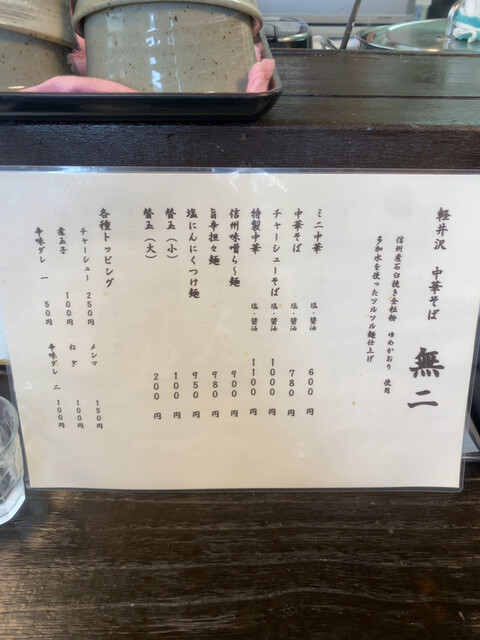 軽井沢 中華そば 無二
信州産石臼挽き全粒粉 ゆめかおり 使用
多加水を使ったツルツル麺仕上げ
ミニ中華 塩・醤油 600円
中華そば 塩・醤油 780円
チャーシューそば 塩・醤油 1000円
特製中華 塩・醤油 1100円
信州味噌ら〜麺 900円
旨辛担々麺 980円
塩にんにくつけ麺 950円
替玉(小) 100円
替玉(大) 200円
各種トッピング
チャーシュー 250円 メンマ 150円
煮玉子 100円 ねぎ 100円
辛味ダレ 一 50円 辛味ダレ 二 100円